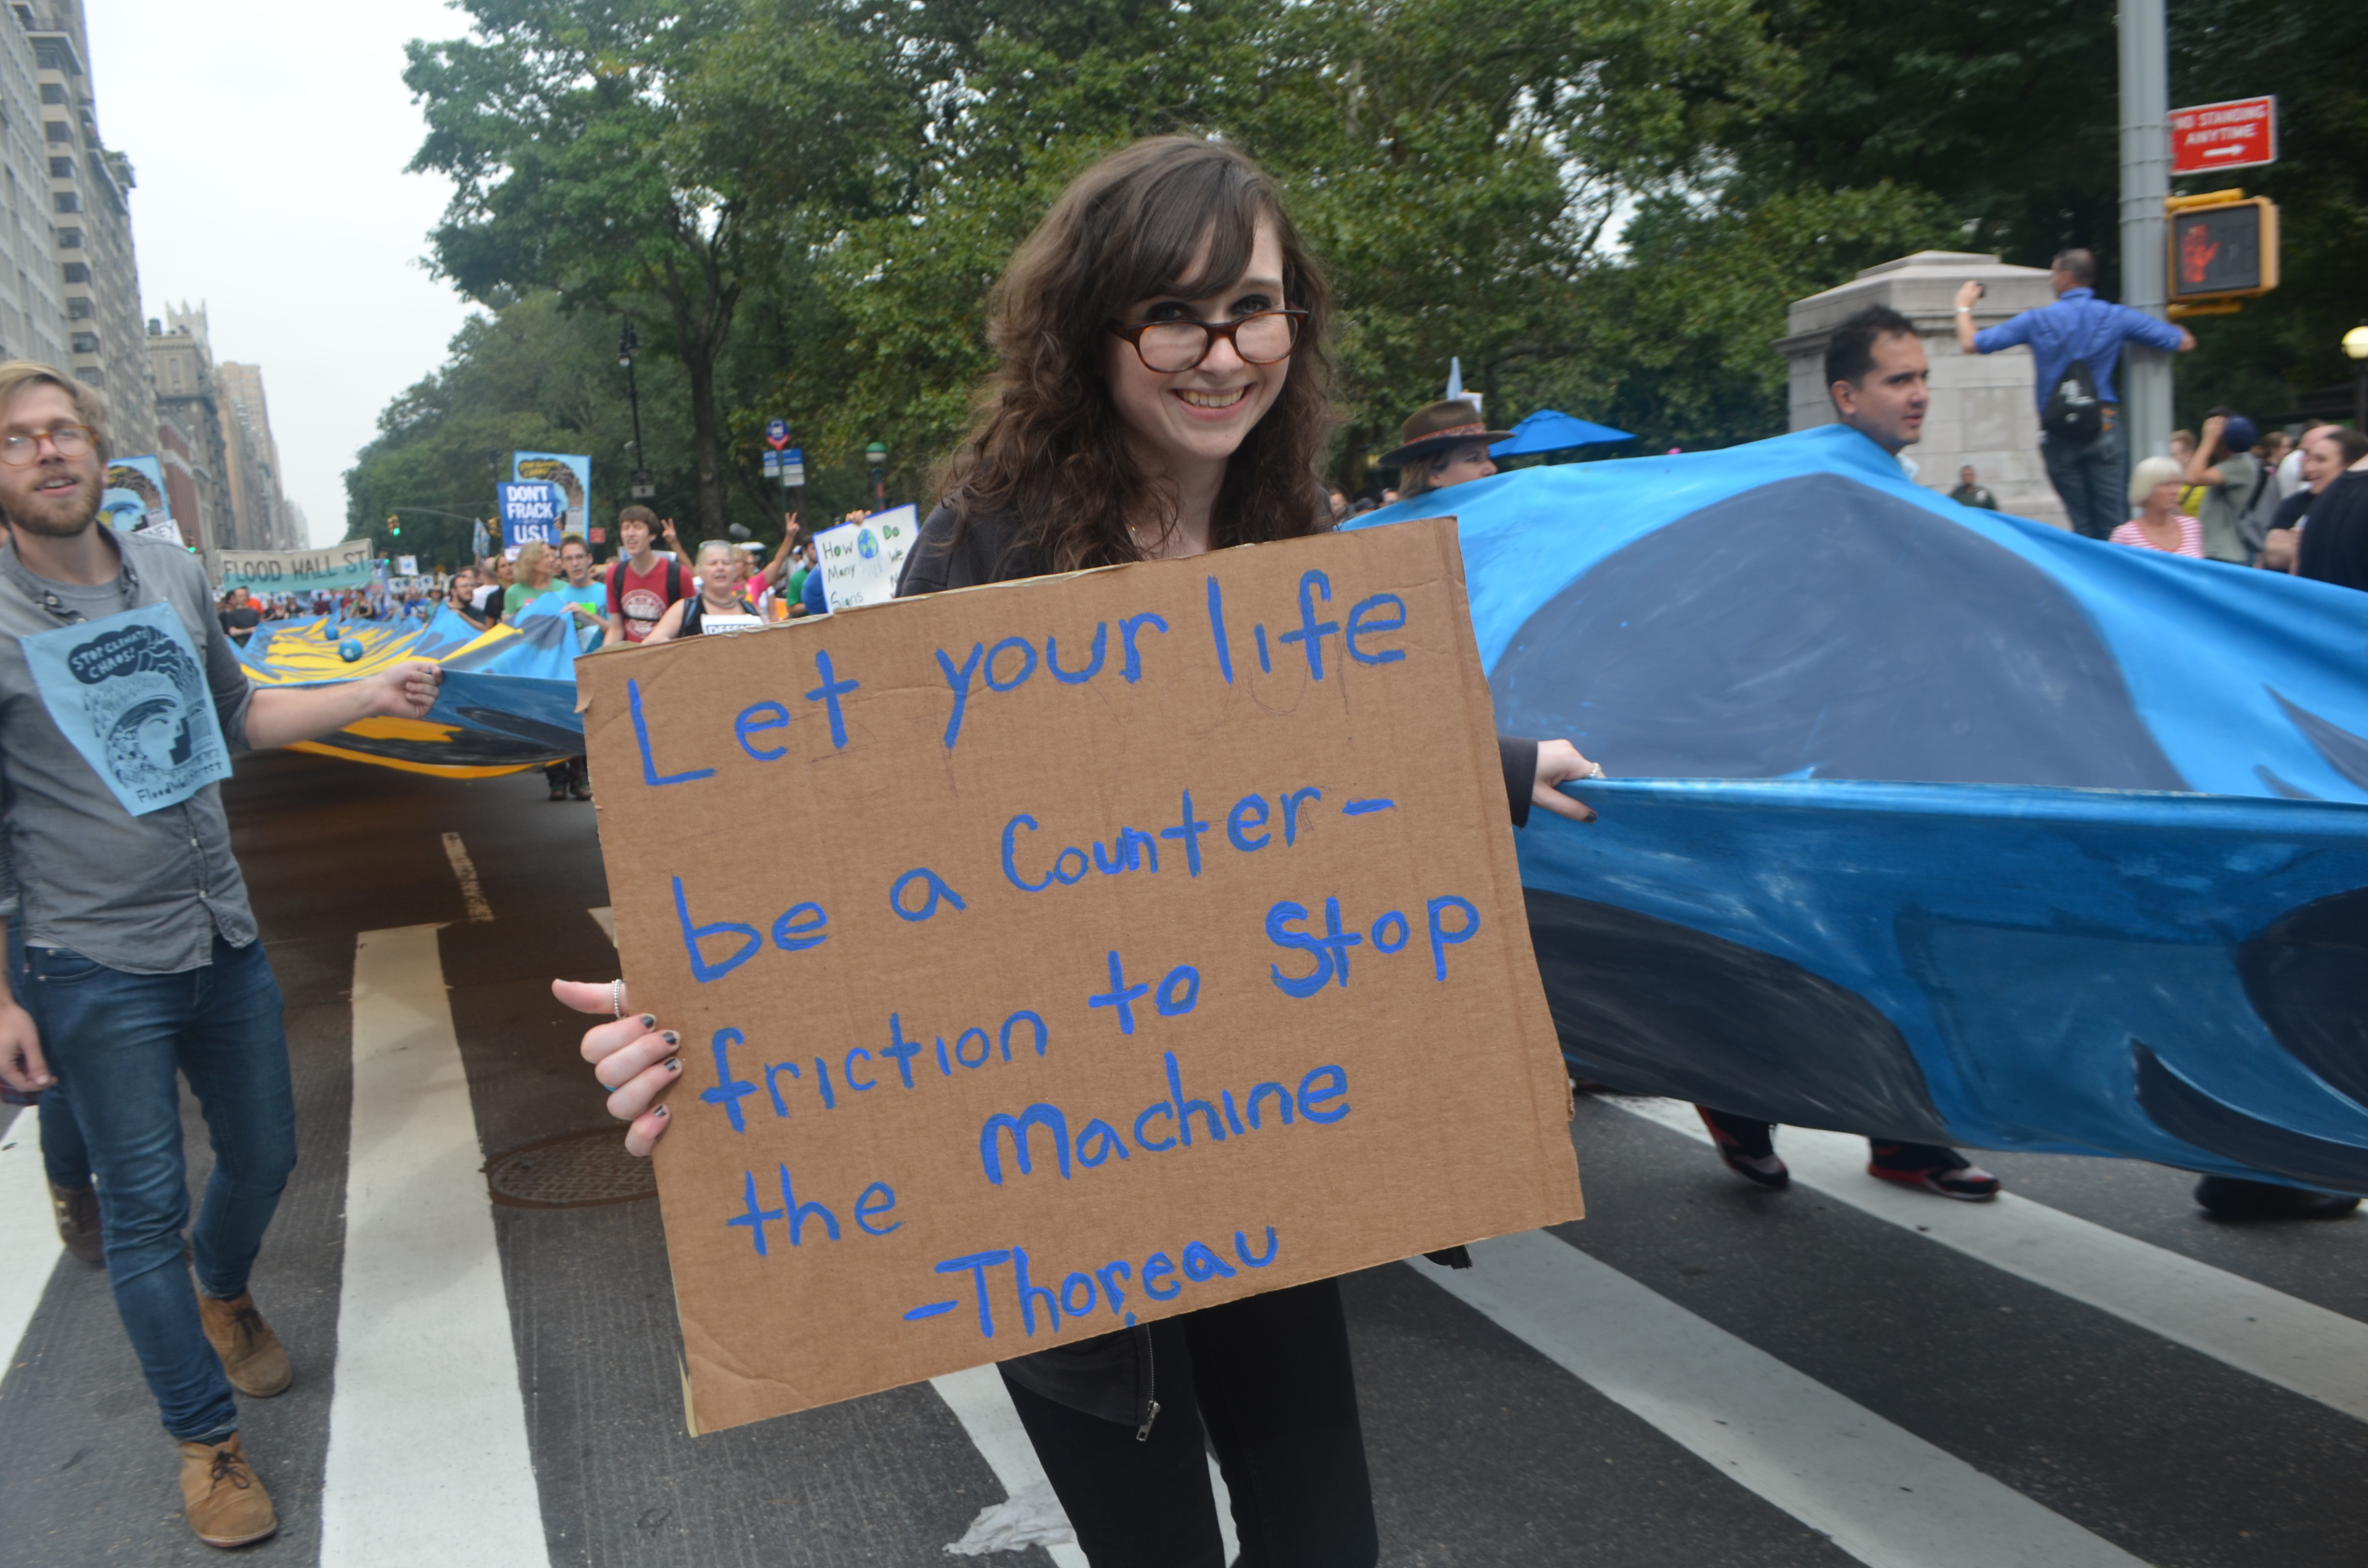 Let your life
be a Counter-
friction to Stop
the Machine
-Thoreau
NO STANDING
ANYTIME
DON'T
FRACK
US!
FLOOD WALL ST
How Do
Many We
Signs
STOP CLIMATE
CHAOS!
FloodWallStreet